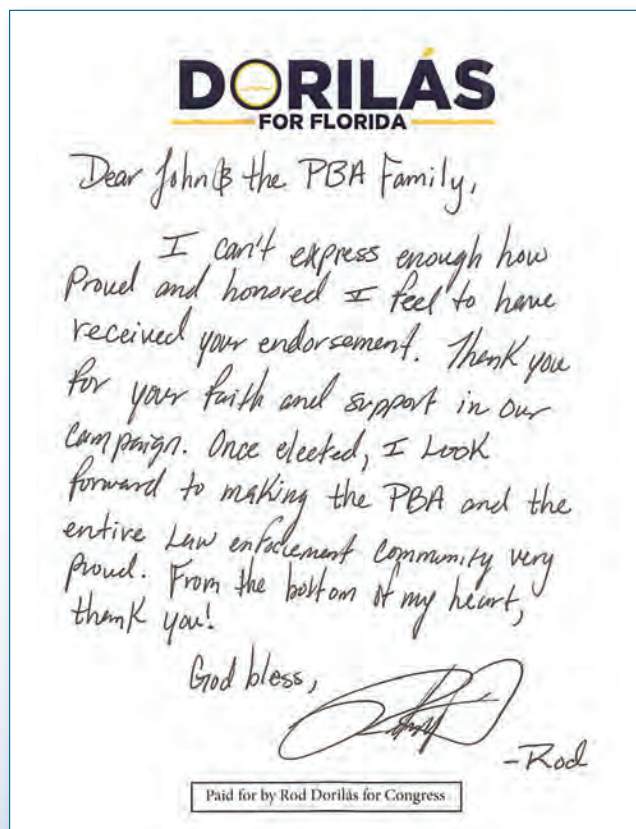 DORILÁS
FOR FLORIDA
Dear John & the PBA Family,
I can't express enough how
Proud and honored I feel to have
received your endorsement. Thank you
for your faith and support in our
Campaign. Once elected, I Look
forward to making the PBA and the
entire Law enfocement Community very
Proud. From the bottom of my heart,
thank you!
God bless,
-Rod
Paid for by Rod Dorilás for Congress